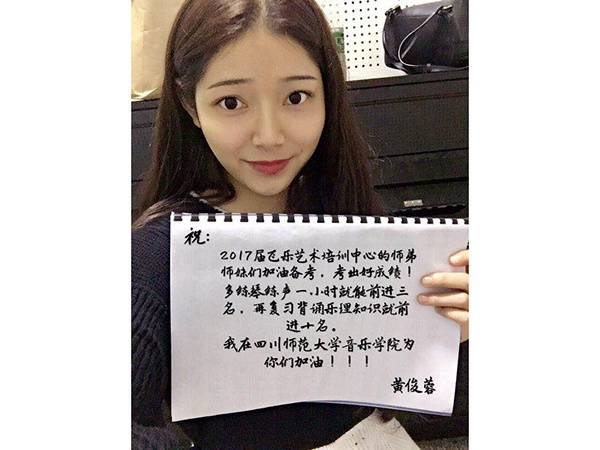 祝：
2017届飞乐艺术培训中心的师弟
师妹们加油备考，考出好成绩！
多练琴练声一小时就能前进三
名，再复习背诵乐理知识就前
进十名。
我在四川师范大学音乐学院为
你们加油！！！
黄俊蓉